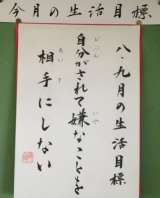 今月の生活目標
八・九月の生活目標
自分がされて嫌なことを
相手にしない